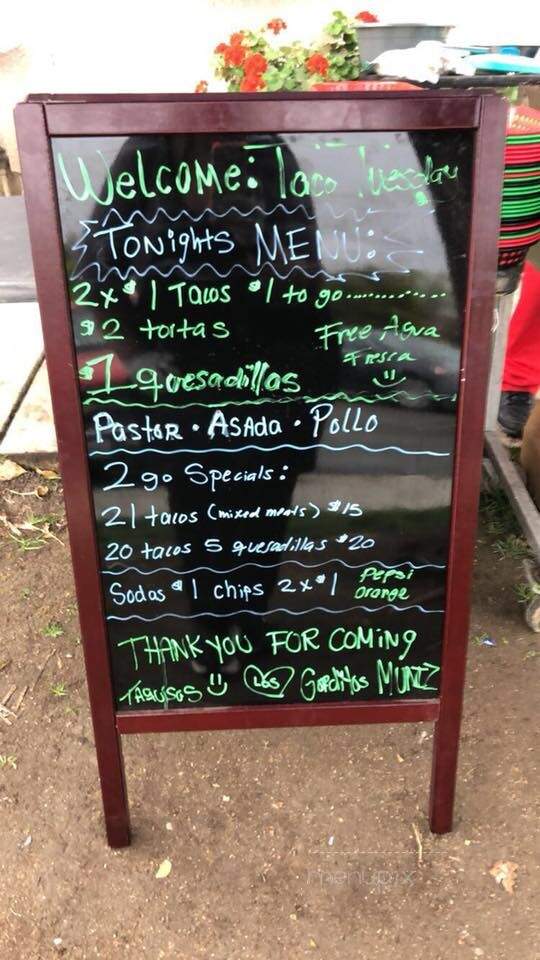 Welcome: Taco Tuesday
Tonights MENU:
2x$1 Tacos $1 to go..............
$2 tortas
Free Agua
Fresca
$1 quesadillas
Pastor · Asada · Pollo
2 go Specials:
21 tacos (mixed meats) $15
20 tacos 5 quesadillas $20
Sodas $1 chips 2x$1
Pepsi
Orange
THANK YOU FOR COMING
TAQUISOS Los Gorditos MUNIZ
menupix